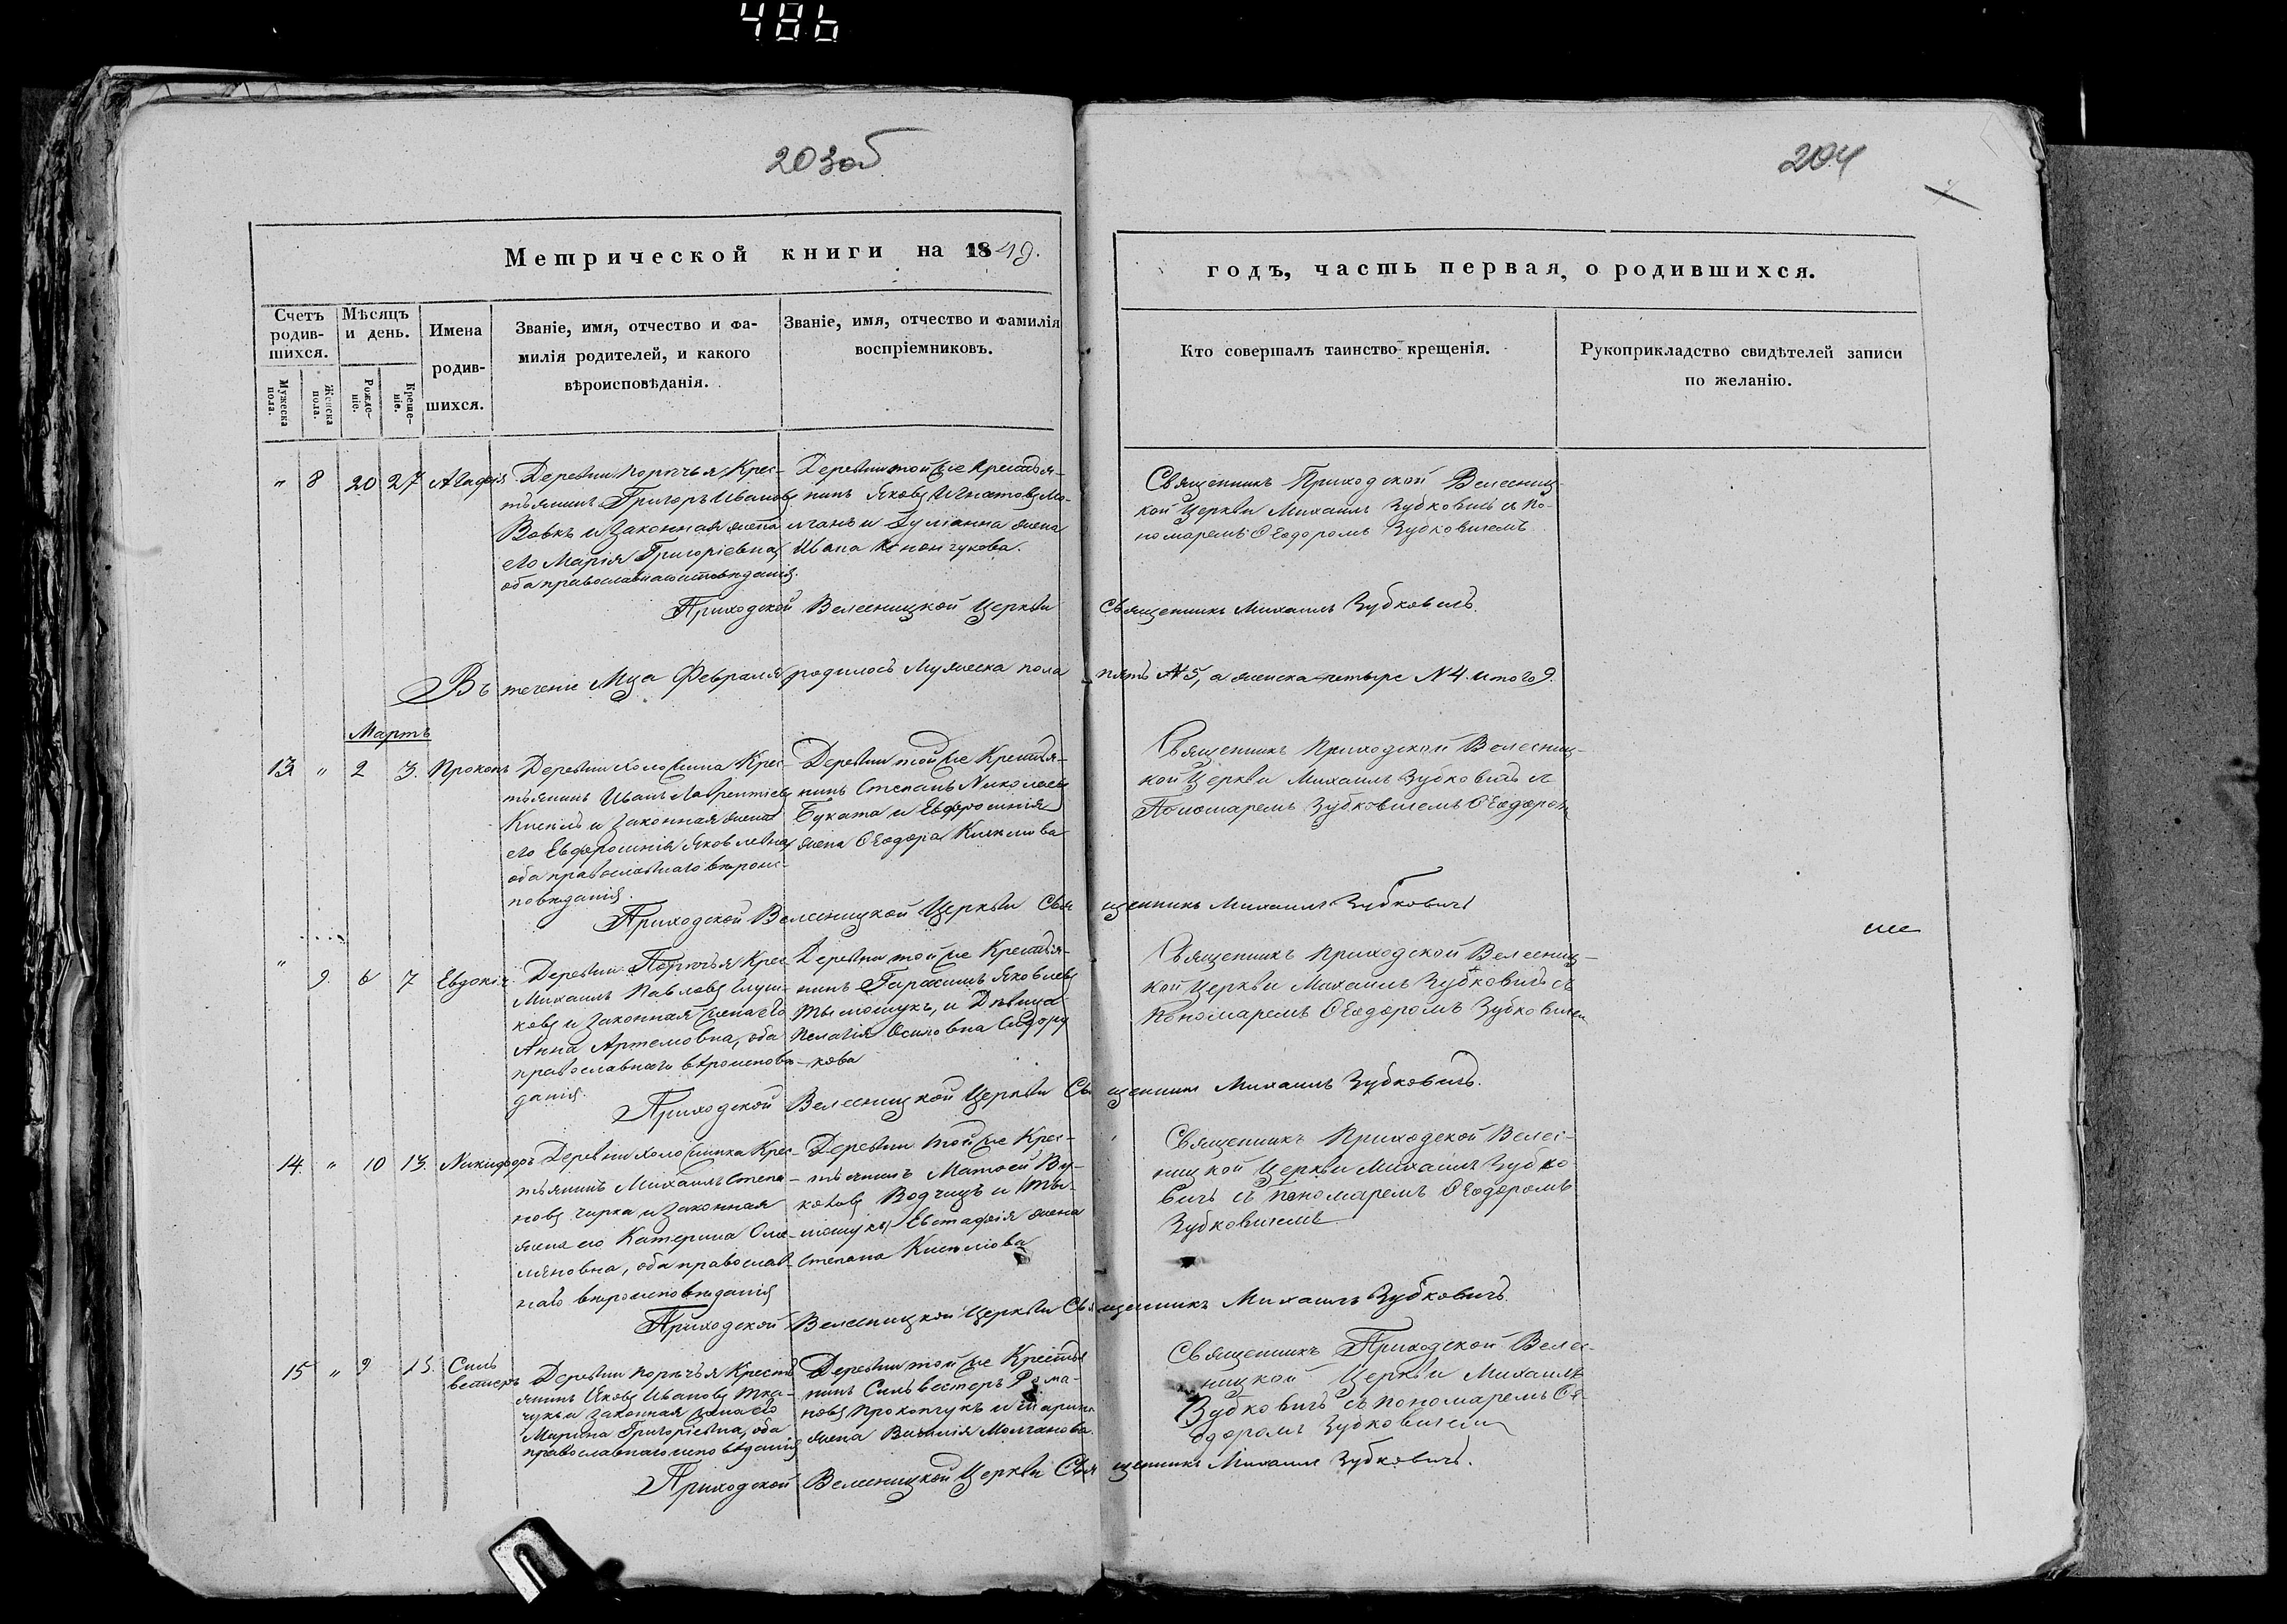 486
203об
204
Метрической книги на 1849.
годъ, часть первая, о родившихся.
Счетъ родившихся.
Мужеска пола.
Женска пола.
Мѣсяцъ и день.
Рожденіе.
Крещеніе.
Имена родившихся.
Званіе, имя, отчество и фа-
милія родителей, и какого
вѣроисповѣданія.
Званіе, имя, отчество и фамилія
воспріемниковъ.
Кто совершалъ таинство крещенія.
Рукоприкладство свидѣтелей записи
по желанію.
" 8 20 27 Агафія
Деревни Порѣчья Крес-
тьянинъ Григоръ Ивановъ
Вовкъ и законная жена
его Марія Григоріевна,
оба православнаго исповѣданія.
Деревни той же Крестья-
нинъ Яковъ Игнатовъ Мо-
лчанъ и Іуліанна жена
Ивана Конончукова.
Священникъ Приходской Велесниц-
кой Церкви Михаилъ Зубковичъ съ по-
номаремъ Ѳеодоромъ Зубковичемъ
Приходской Велесницкой Церкви Священникъ Михаилъ Зубковичъ.
Въ теченіе Мца Февраля родилось Мужеска пола пять №5, а женска четыре №4. итого 9.
Мартъ
13. " 2 3. Прокопъ
Деревни Холожина Крес-
тьянинъ Иванъ Лаврентіевъ
и законная жена
его Евфросинія Яковлевна
оба православнаго вѣроис-
повѣданія.
Деревни той же Крестья-
нинъ Степанъ Николаевъ
Буката и Евфросинія
жена Ѳеодора
Священникъ Приходской Велесниц-
кой Церкви Михаилъ Зубковичъ съ
Пономаремъ Зубковичемъ Ѳеодоромъ
Приходской Велесницкой Церкви Священникъ Михаилъ Зубковичъ
" 9. 6 7 Евдокія.
Деревни Порѣчья Крес
Михаилъ Павловъ Глуш-
ковъ и законная жена его
Анна Артемовна, оба
православнаго вѣроисповѣ-
данія.
Деревни той же Крестья-
нинъ Гарасимъ Яковлевъ
Тымошукъ, и Дѣвица
Пелагія Осиповна Сидору
кова
Священникъ Приходской Велесниц-
кой Церкви Михаилъ Зубковичъ съ
Пономаремъ Ѳеодоромъ Зубковичем
Приходской Велесницкой Церкви Священникъ Михаилъ Зубковичъ.
14. " 10 13. Никифоръ
Деревни Холожина Крес-
тьянинъ Михаилъ Степа-
новъ Чирка и законная
жена его Катерина Оме-
ляновна, оба православ-
наго вѣроисповѣданія
Деревни той же Крес-
тьянинъ Матѳей Ву-
коловъ Водчицъ и Ты-
мошукъ Евстафія жена
Степана
Священникъ Приходской Велес-
ницкой Церкви Михаилъ Зубко-
вичъ съ Пономаремъ Ѳеодоромъ
Зубковичемъ
Приходской Велесницкой Церкви Священникъ Михаилъ Зубковичъ.
15 " 9 13. Сильвестеръ
Деревни Порѣчья Кресть
янинъ Яковъ Ивановъ Тка-
чукъ и законная жена его
Марина Григоріевна, оба
православнаго исповѣданія
Деревни той же Крестья
нинъ Сильвестеръ Рома-
новъ Прокопчукъ и Марина
жена Василія Молчанова.
Священникъ Приходской Велес-
ницкой Церкви Михаилъ
Зубковичъ съ пономаремъ Ѳе-
одоромъ Зубковичем
Приходской Велесницкой Церкви Священникъ Михаилъ Зубковичъ.